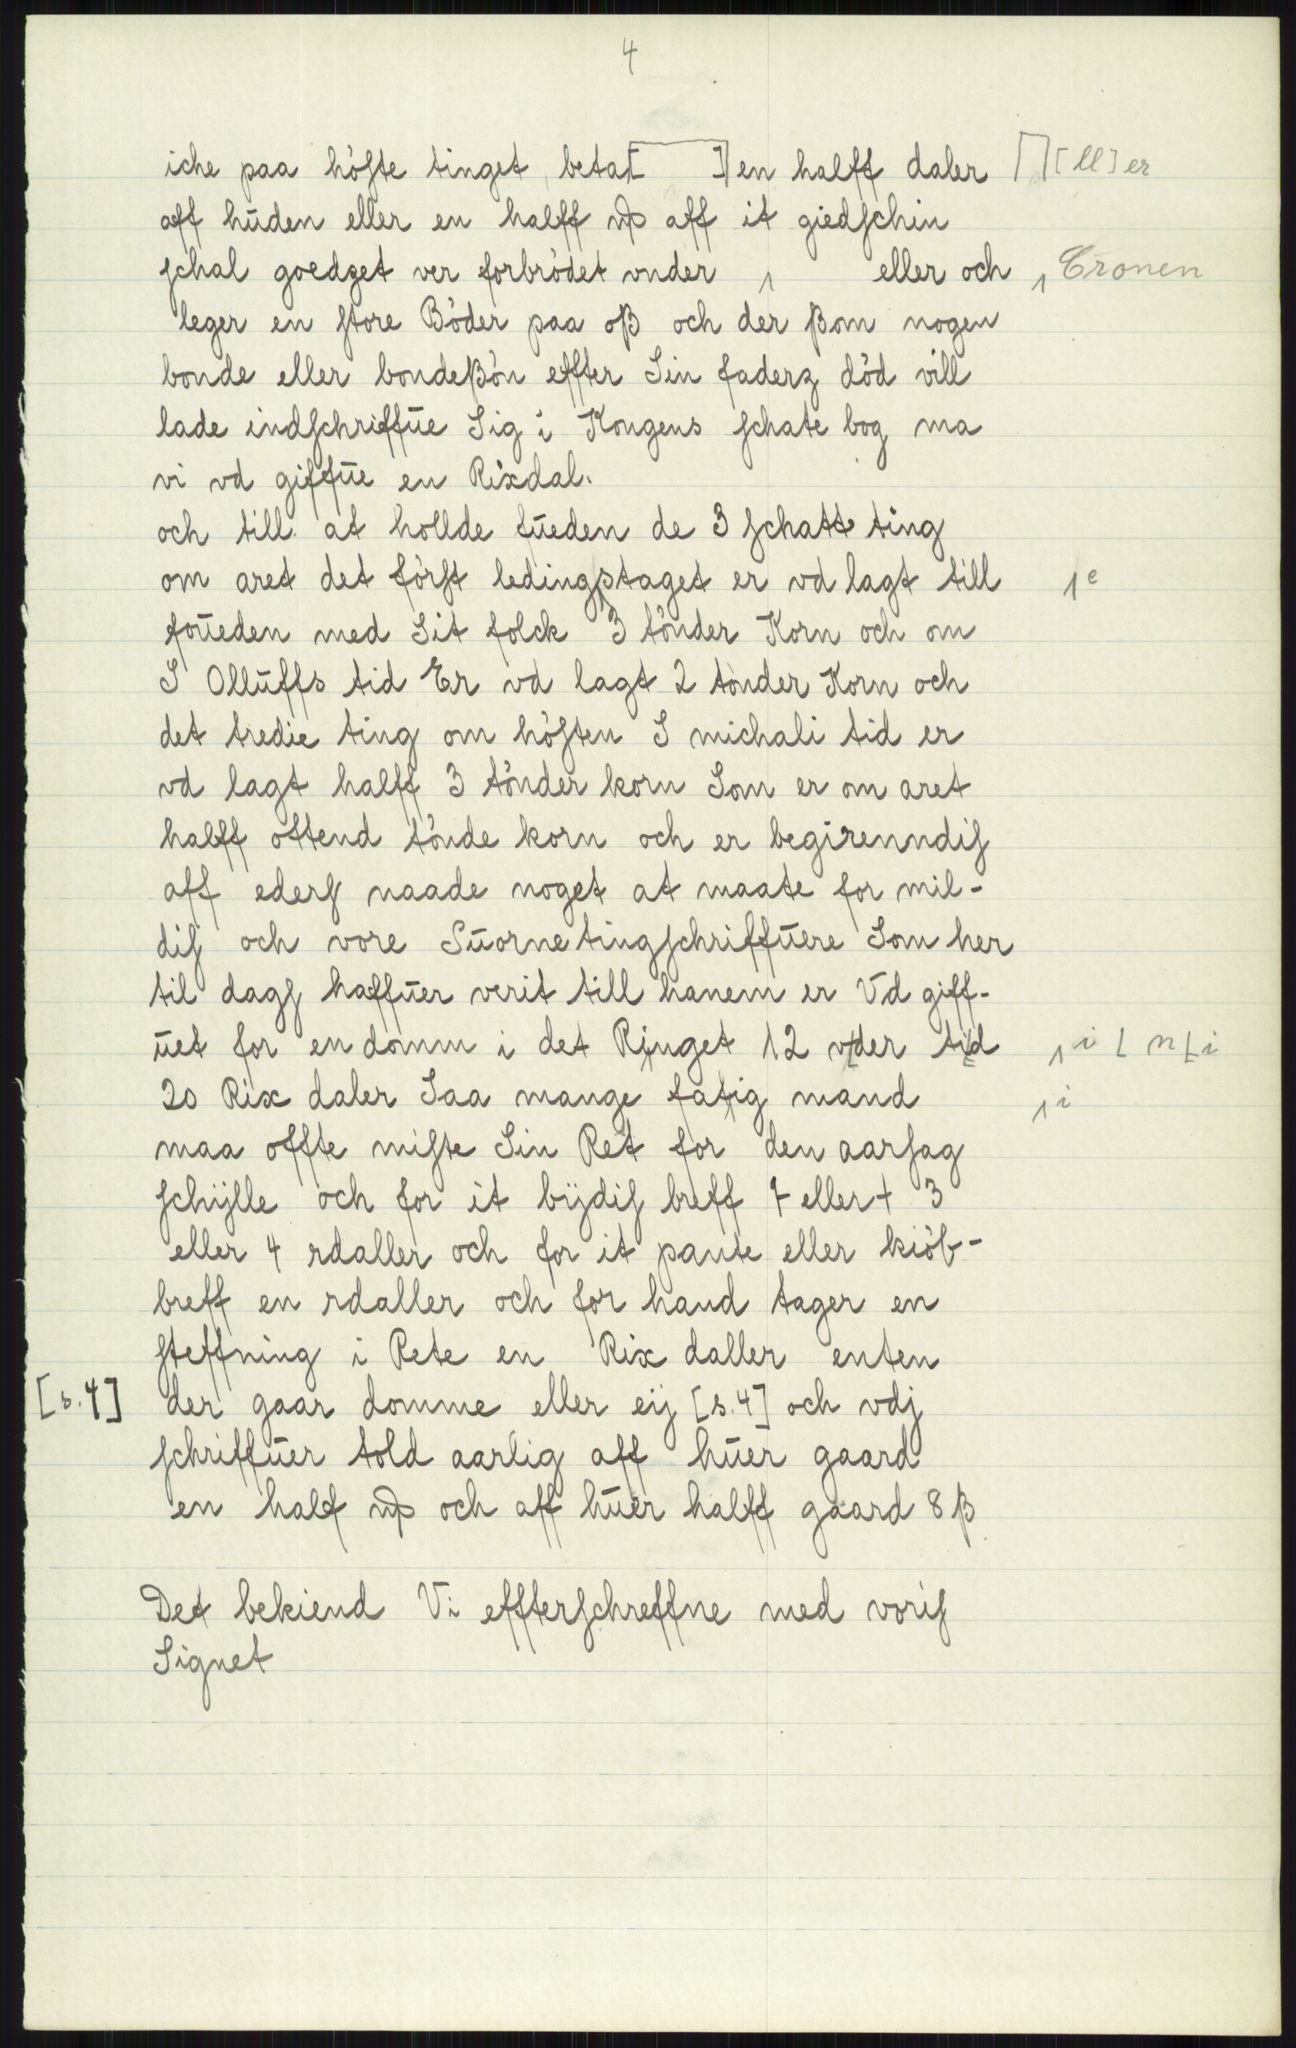 4
iche paa höſte tinget beta[ ] en halff daler ⌈⌉ [ll]er
aff huden eller en halff aff it giedſchin
ſchal goedzet ver forbrödet vnder ^ eller och ^ Cronen
leger en ſtore Böder paa oß och der ßom nogen
bonde eller bondeßön effter Sin faderz död vill
lade indſchriffūe Sig i Kongens ſchate bog ma
vi vd giffūe en Rixdal.
och till at hollde fūeden de 3 ſchatt ting
om aret det förſt ledingstaget er vd lagt till 1 e
foūeden med Sit folck 3 tönder Korn och om
S Ollūffs tid Er vd lagt 2 tönder Korn och
det tredie ting om höſten S michali tid er
vd lagt halff 3 tönder korn Som er om aret
halff ottend tönde korn och er begirenndiſ
aff ederſ naade noget at maate for mil-
diſ och vore Sūorne tingſchriffūere Som her
til dagſ haffūer verit till hanem er Vd giff-
ūet for en domm i det Ringet 12 vder tid ^ i ⌊ n ⌊ i
20 Rix daler Saa mange fatig mand ^ i
maa offte miſte Sin Ret for den aarſag
ſchÿlle och for it bÿdiſ breff + eller + 3
eller 4 rdaller och for it pante eller kiöb-
breff en rdaller och for hand tager en
ſteffning i Rete en Rix daller enten
[s.4] der gaar domme eller eij [s.4] och vdj
ſchriffūer told aarlig aff hūer gaard
en half och aff hūer halff gaard 8 ß
Det bekiend Vi effterſchreffne med voriſ
Signet